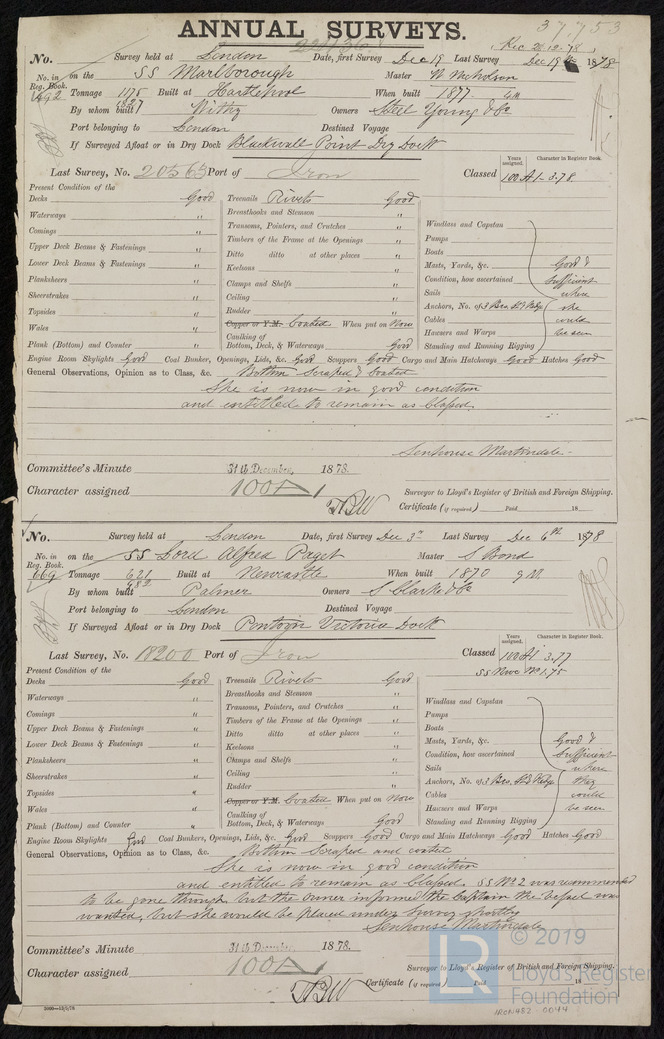 ANNUAL SURVEYS.
37,753
Rec 21.12.78
No. Survey held at London Date, first Survey Dec 19 Last Survey Dec 19 1878
No. in Reg. Book. on the SS Marlborough Master W Nicholson
492 Tonnage 1175 Built at Hartlepool When built 1877
827
By whom built Withy Owners Steel Young & Co
Port belonging to London Destined Voyage
If Surveyed Afloat or in Dry Dock Blackwall Point Dry Dock
Last Survey, No. 20563 Port of Iron Classed 100 A1 3.78
Years assigned. Character in Register Book.
Present Condition of the
Decks Good Treenails Rivets Good
Waterways " Breasthooks and Stemson "
Comings " Transoms, Pointers, and Crutches " Windlass and Capstan
Upper Deck Beams & Fastenings " Timbers of the Frame at the Openings " Pumps
Lower Deck Beams & Fastenings " Ditto ditto at other places " Boats
Planksheers " Keelsons " Masts, Yards, &c. Good &
Sheerstrakes " Clamps and Shelfs " Condition, how ascertained sufficient
Topsides " Ceiling " Sails where
Wales " Rudder " Anchors, No. of 3 Brs. St & Kedge she
Plank (Bottom) and Counter " Copper or Y.M. Coated When put on Now Cables could
Caulking of Bottom, Deck, & Waterways Good Hawsers and Warps be seen
Standing and Running Rigging
Engine Room Skylights Good Coal Bunker, Openings, Lids, &c. Good Scuppers Good Cargo and Main Hatchways Good Hatches Good
General Observations, Opinion as to Class, &c. Bottom Scraped & Coated
She is now in good condition
and entitled to remain as Classed.
Senhouse Martindale
Committee's Minute 31st December, 1878.
Character assigned 100 A 1 Surveyor to Lloyd's Register of British and Foreign Shipping.
Certificate (if required) Paid 18
No. Survey held at London Date, first Survey Dec 3rd Last Survey Dec 6th 1878
No. in Reg. Book. on the SS Lord Alfred Paget Master S Bond
669 Tonnage 621 Built at Newcastle When built 1870
482
By whom built Palmer Owners S Clarke & Co
Port belonging to London Destined Voyage
If Surveyed Afloat or in Dry Dock Pontoon Victoria Dock
Last Survey, No. 18200 Port of Iron Classed 100 A1 3.77
Years assigned. Character in Register Book.
Present Condition of the
Decks Good Treenails Rivets Good
Waterways " Breasthooks and Stemson "
Comings " Transoms, Pointers, and Crutches " Windlass and Capstan
Upper Deck Beams & Fastenings " Timbers of the Frame at the Openings " Pumps
Lower Deck Beams & Fastenings " Ditto ditto at other places " Boats
Planksheers " Keelsons " Masts, Yards, &c. Good &
Sheerstrakes " Clamps and Shelfs " Condition, how ascertained sufficient
Topsides " Ceiling " Sails where
Wales " Rudder " Anchors, No. of 3 Brs. St & Kedge they
Plank (Bottom) and Counter " Copper or Y.M. Coated When put on Now Cables could
Caulking of Bottom, Deck, & Waterways Good Hawsers and Warps be seen
Standing and Running Rigging
Engine Room Skylights Good Coal Bunkers, Openings, Lids, &c. Good Scuppers Good Cargo and Main Hatchways Good Hatches Good
General Observations, Opinion as to Class, &c. Bottom Scraped and coated
She is now in good condition
and entitled to remain as Classed. SS No 2 was recommended
to be gone through but the owner informed the Captain the vessel was
wanted, but she would be placed under survey shortly
Senhouse Martindale
Committee's Minute 31st December, 1878.
Character assigned 100 A 1 Surveyor to Lloyd's Register of British and Foreign Shipping.
Certificate (if required) Paid 18
5000—13/5/78
LR © 2019
Lloyd's Register
Foundation
IRON482-0044